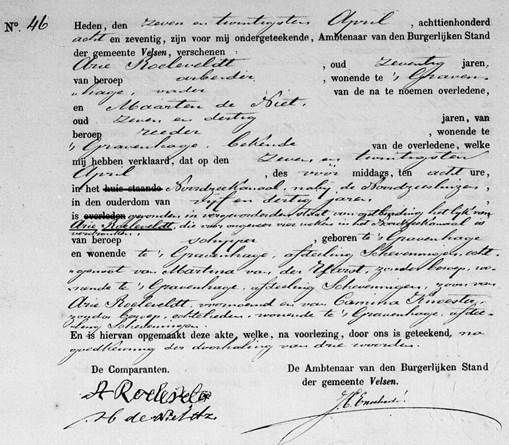 No. 46
Heden, den zeven en twintigsten April, achttienhonderd
acht en zeventig, zijn voor mij ondergeteekende, Ambtenaar van den Burgerlijken Stand
der gemeente Velsen, verschenen
Arie Roeleveldt, oud zeventig jaren,
van beroep arbeider, wonende te 's Graven-
hage, vader van de na te noemen overledene,
en Maarten de Niet,
oud zeven en dertig jaren, van
beroep reeder, wonende te
's Gravenhage, bekende van de overledene, welke
mij hebben verklaard, dat op den zeven en twintigsten
April, des voor middags, ten acht ure,
in het huis staande Noordzeekanaal, nabij de Noordzeesluizen,
in den ouderdom van vijf en dertig jaren,
is overleden gevonden in vergevorderden staat van ontbinding het lijk van
Arie Roeleveldt, die voor ongeveer vier weken in het Noordzeekanaal is
verdronken,
van beroep schipper, geboren te 's Gravenhage
en wonende te 's Gravenhage, afdeeling Scheveningen, echt-
genoot van Martina van der, zonder beroep, wo-
nende te 's Gravenhage, afdeeling Scheveningen, zoon van
Arie Roeleveldt, voornoemd en van
zonder beroep, echtelieden, wonende te 's Gravenhage, afdee-
ling Scheveningen.
En is hiervan opgemaakt deze akte, welke, na voorlezing, door ons is geteekend, na
goedkeuring der doorhaling van drie woorden.
De Comparanten. De Ambtenaar van den Burgerlijken Stand
der gemeente Velsen.
A Roeleveld
M de Niet